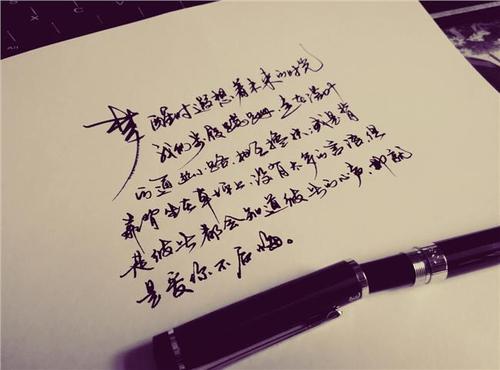 梦醒时遐想着未来的时光
我们步履蹒跚,走在落叶
的小路,相互搀扶,或是背
靠背坐在草坪上,没有太多的言语但
是彼此都会知道彼此的心声,那就
是爱你不后悔。